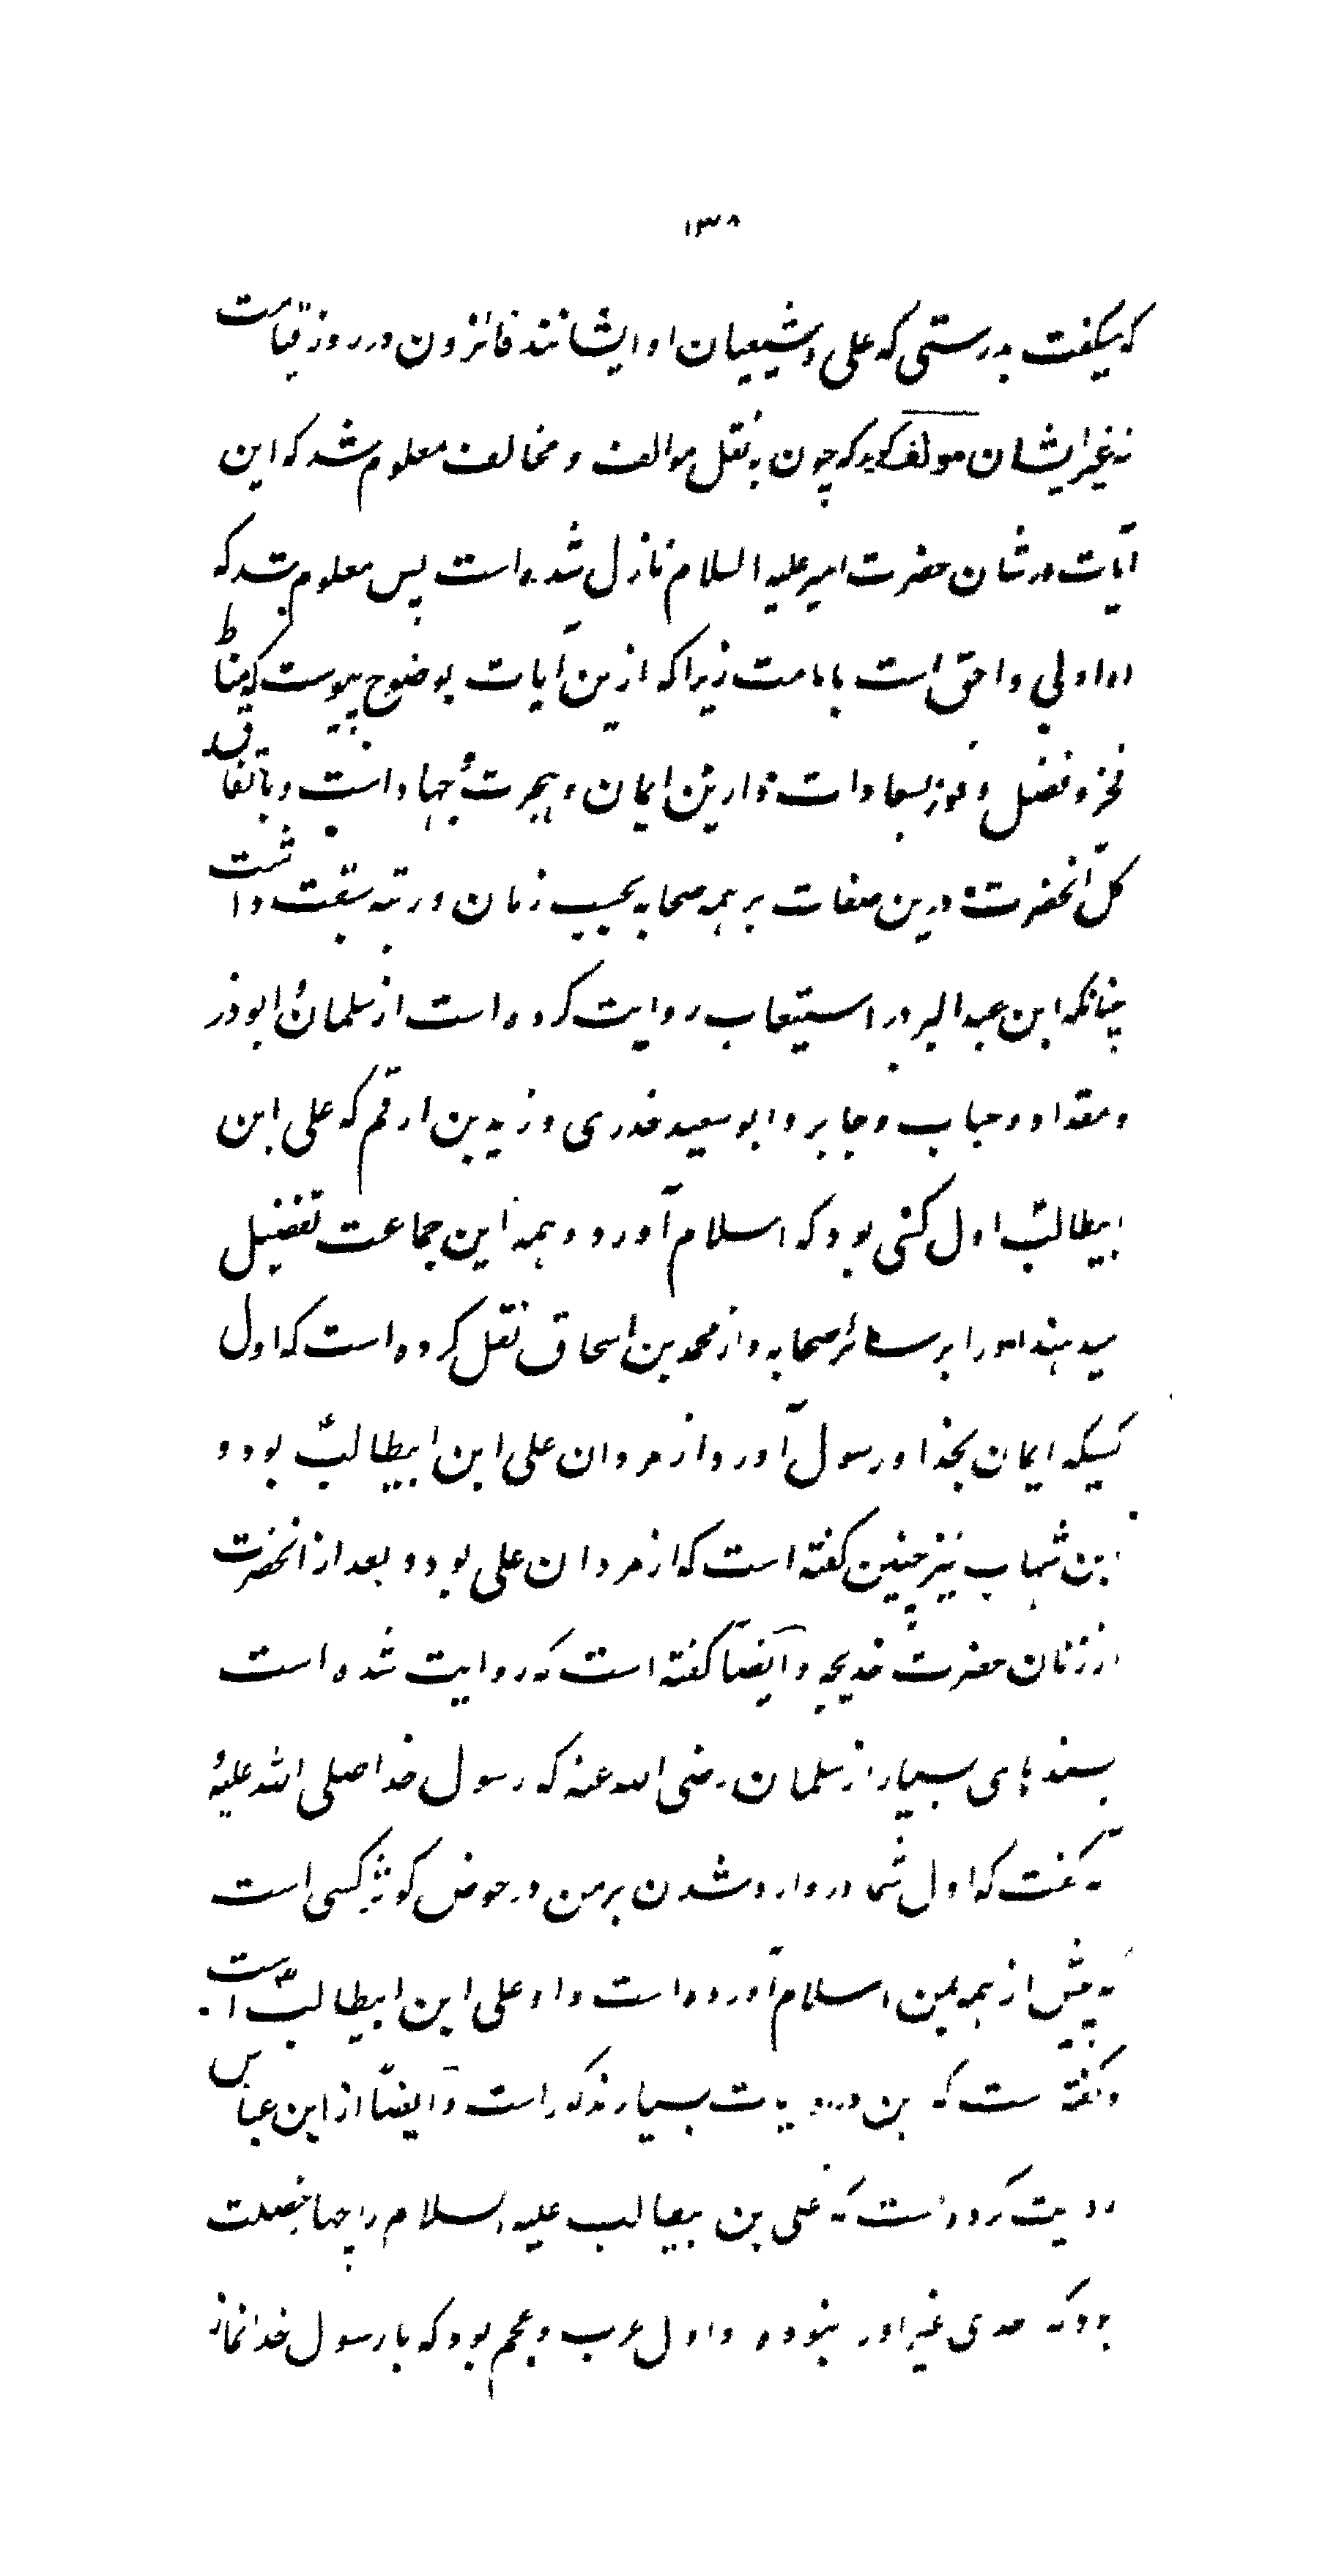 ۱۳۸
که میگفت بدرستی که علی و شیعیان او ایشانند فائزون در روز قیامت
نه غیر ایشان مولف گوید که چون به نقل موالف و مخالف معلوم شد که این
آیات در شان حضرت امیر علیه السلام نازل شده است پس معلوم شد که
او اولی و احق است بامامت زیرا که ازین آیات بوضوح پیوست که مناط
فخر و فضل و فوز بسعادات دارین ایمان و هجرت و جهاد است و باتفاق
کل آنحضرت درین صفات بر همه صحابه بحسب زمان و رتبه سبقت داشت
چنانکه ابن عبد البر در استیعاب روایت کرده است از سلمان و ابوذر
و مقداد و حباب و جابر و ابو سعید خدری و زید بن ارقم که علی ابن
ابیطالب اول کسی بود که اسلام آورد و همه این جماعت تفضیل
میدهند او را بر سائر صحابه و از محمد بن اسحاق نقل کرده است که اول
کسیکه ایمان بخدا و رسول آورد از مردان علی ابن ابیطالبؑ بود و
ابن شهاب نیز چنین گفته است که از مردان علی بود و بعد از آنحضرت
از زنان حضرت خدیجه و ایضاً گفته است که روایت شده است
بسندهای بسیار از سلمان رضی الله عنه که رسول خدا صلی الله علیه و
گفت که اول شما در وارد شدن بر من در حوض کوثر کسی است
که پیش از همه بمن اسلام آورده است و او علی ابن ابیطالب است
و گفته ست که بن روایت بسیار مذکور است و ایضاً از ابن عباس
روایت کرده است که علی بن ابیطالب علیه السلام را چهار خصلت
بود که احدی غیر او را نبوده و اول عرب و عجم بود که با رسول خدا نماز